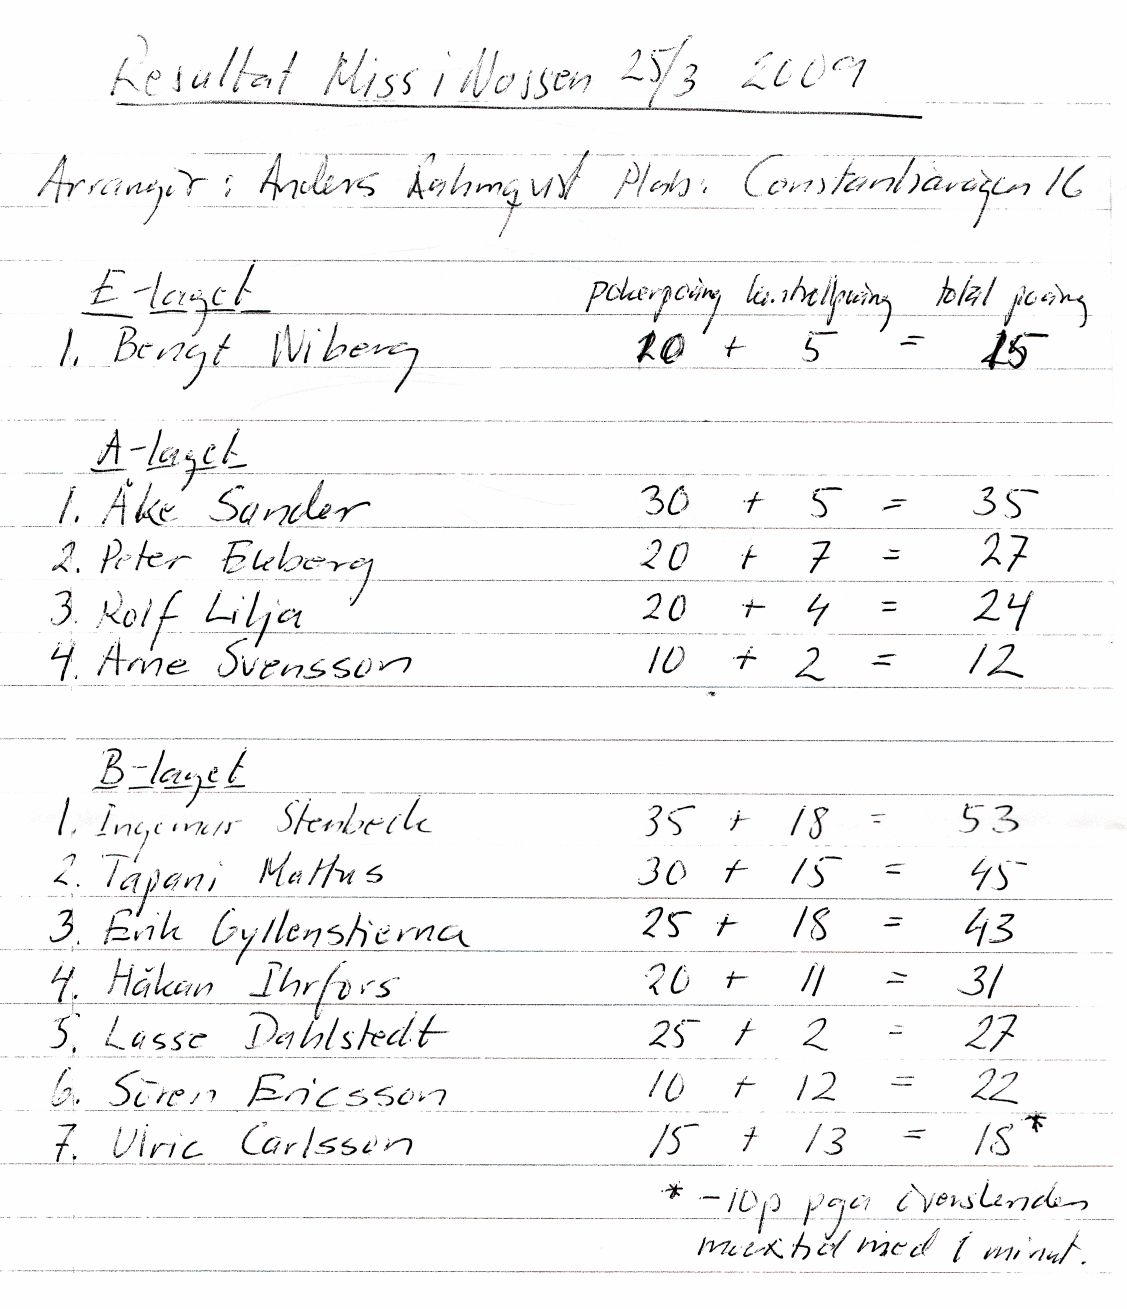 Resultat Miss i Nossen 25/3 2009
Arrangör: Anders Plats: Constantiavägen 16
E-laget pokerpoäng kontrollpoäng total poäng
1. Bengt Wiberg + 5 =
A-laget
1. Åke Sander 30 + 5 = 35
2. Peter Ekberg 20 + 7 = 27
3. Rolf Lilja 20 + 4 = 24
4. Arne Svensson 10 + 2 = 12
B-laget
1. Ingemar Stenbeck 35 + 18 = 53
2. Tapani Mattus 30 + 15 = 45
3. Erik Gyllenstierna 25 + 18 = 43
4. Håkan Ihrfors 20 + 11 = 31
5. Lasse Dahlstedt 25 + 2 = 27
6. Sören Ericsson 10 + 12 = 22
7. Ulric Carlsson 15 + 13 = 18*
* -10p pga överskriden
maxtid med 1 minut.